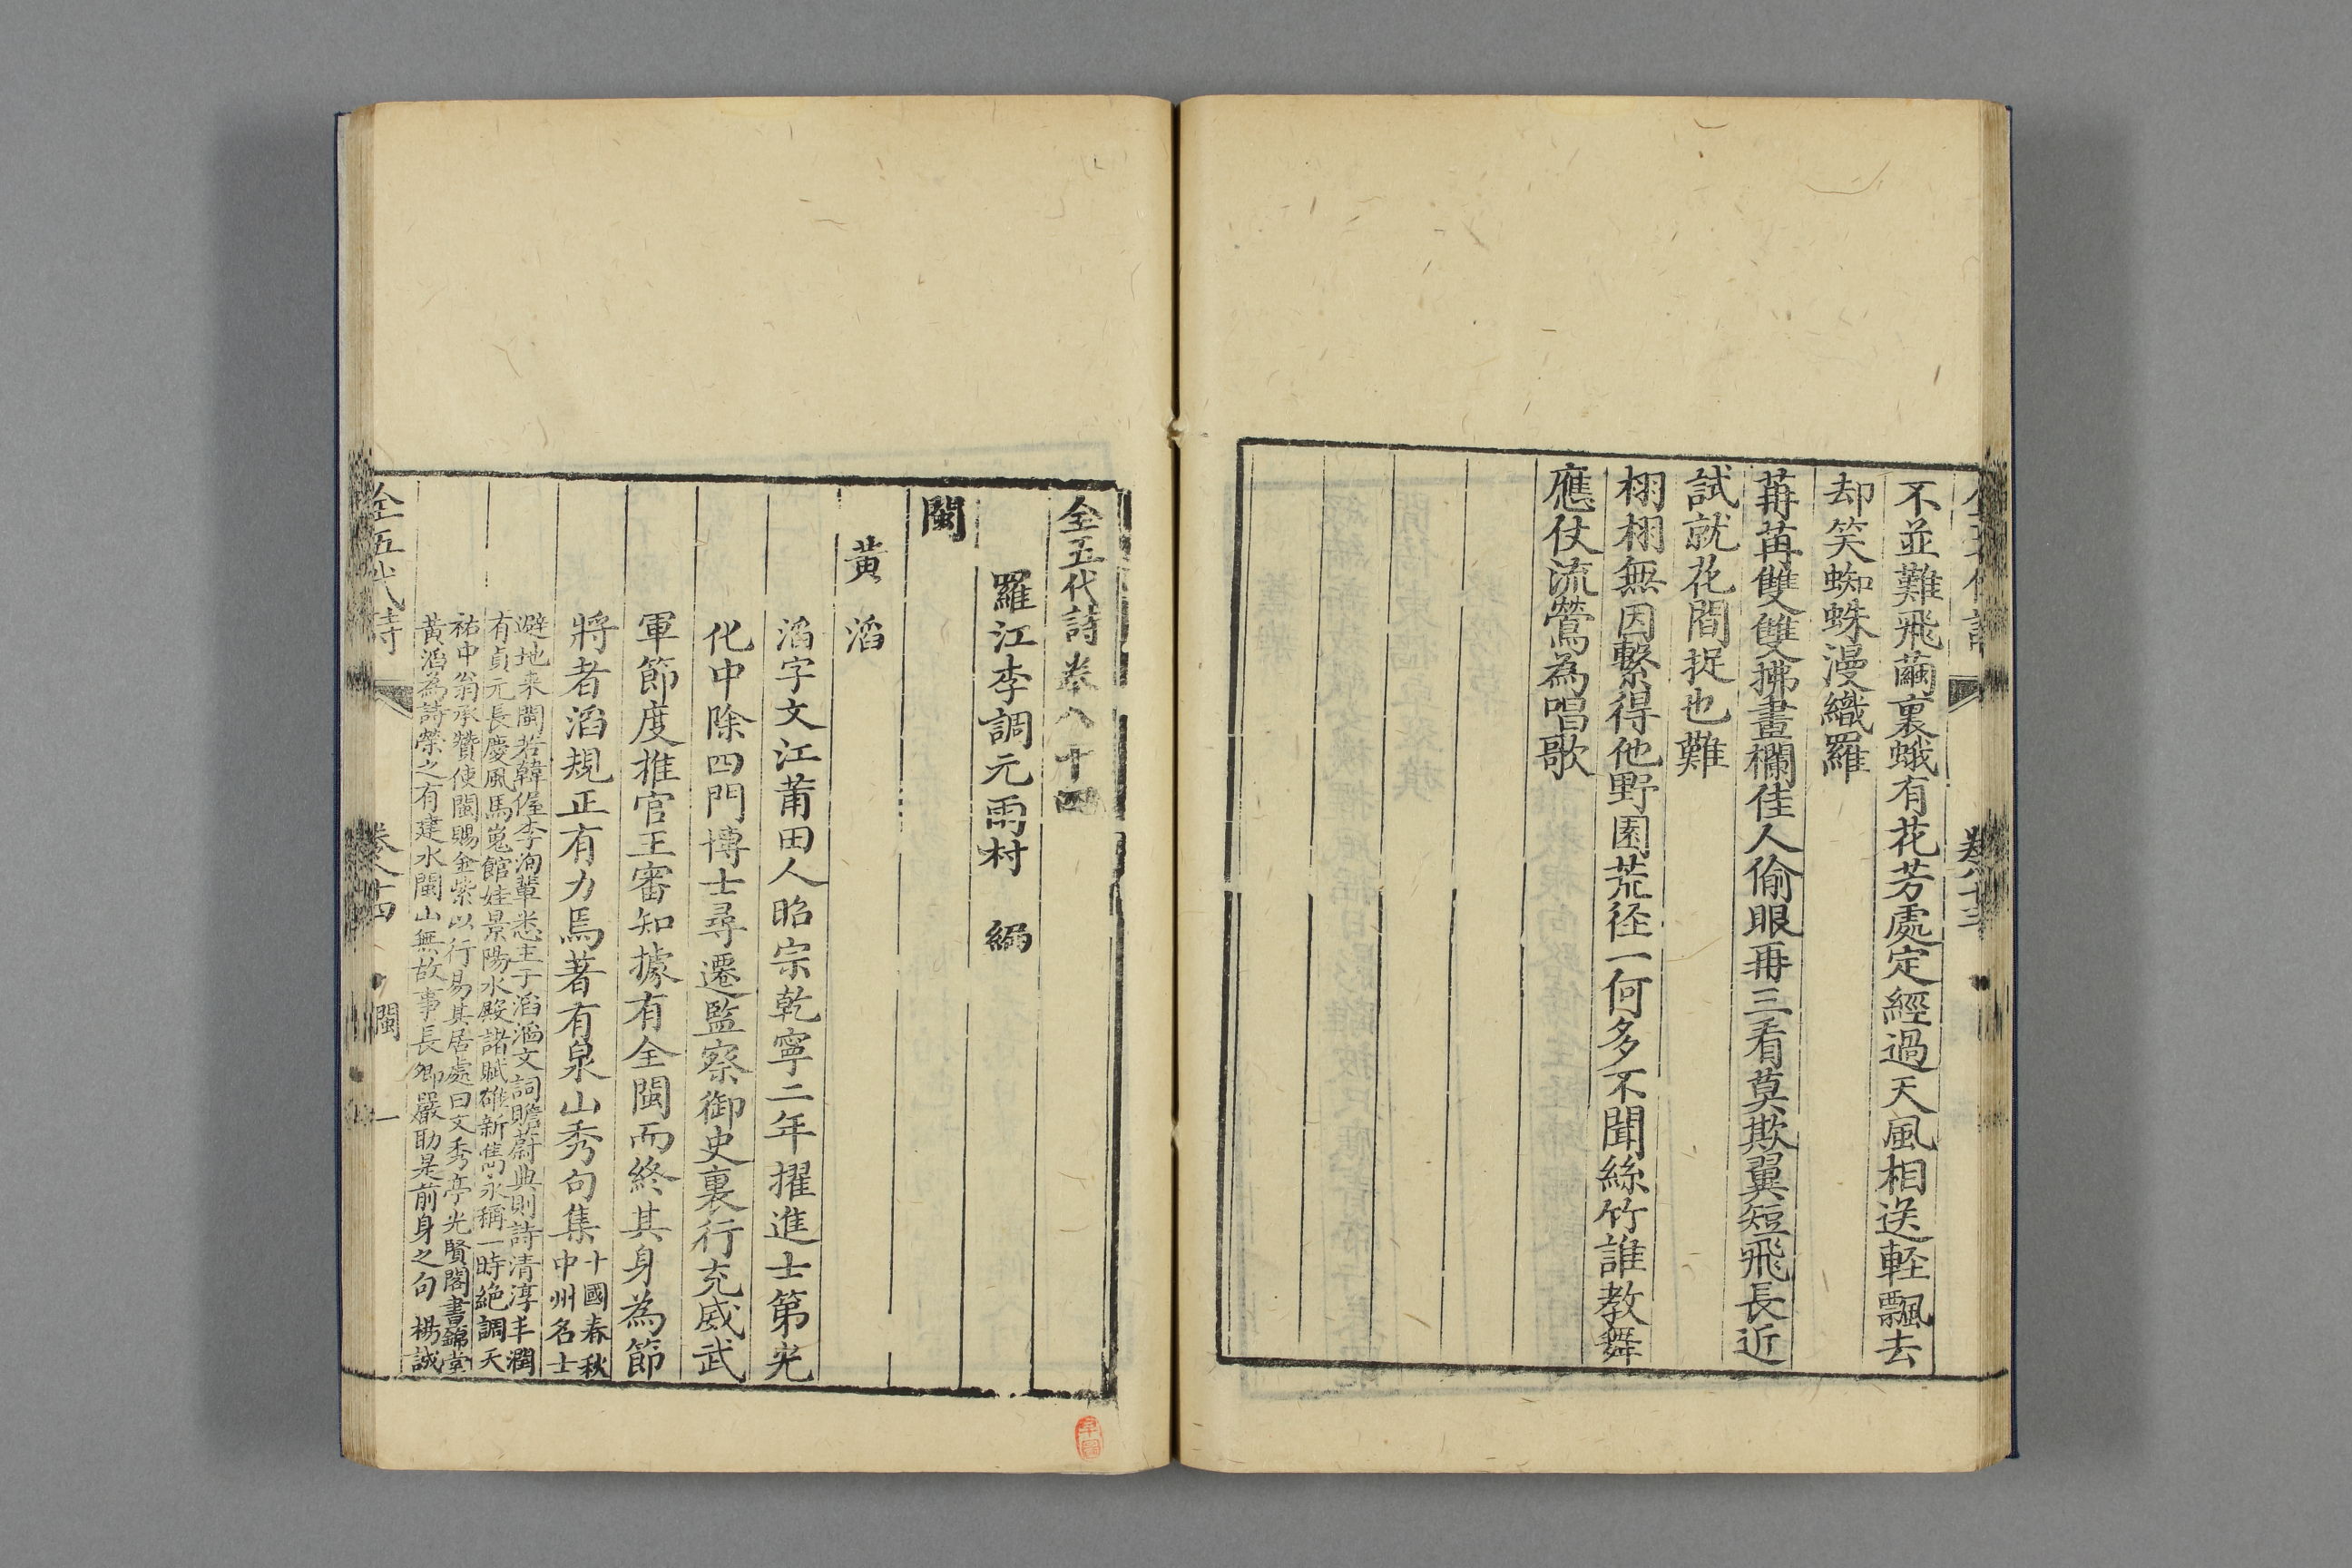 不並難飛繭裏蛾有花芳處定經過天風相送輕飄去
却笑蜘蛛漫織羅
苒苒雙雙拂畫欄佳人偷眼再三看莫欺翼短飛長近
試就花間捉也難
栩栩無因繫得他野園荒徑一何多不聞絲竹誰教舞
應仗流鶯為唱歌
全五代詩卷八十四
羅江李調元雨村 編
閩
黃滔
滔字文江莆田人昭宗乾寧二年擢進士第光
化中除四門博士尋遷監察御史裏行充威武
軍節度推官王審知據有全閩而終其身為節
將者滔規正有力焉著有泉山秀句集十國春秋
中州名士
避地来閩若韓偓李洵輩悉主于滔滔文詞贍蔚典則詩清淳丰潤
有貞元長慶風馬嵬館娃景陽水殿諸賦雄新雋永稱一時絶調天
祐中翁承贊使閩賜金紫以行易其居處曰文秀亭光賢閣書錦堂
黃滔為詩榮之有建水閩山無故事長卿嚴助是前身之句 楊誠
全五代詩 卷八十四 閩 一